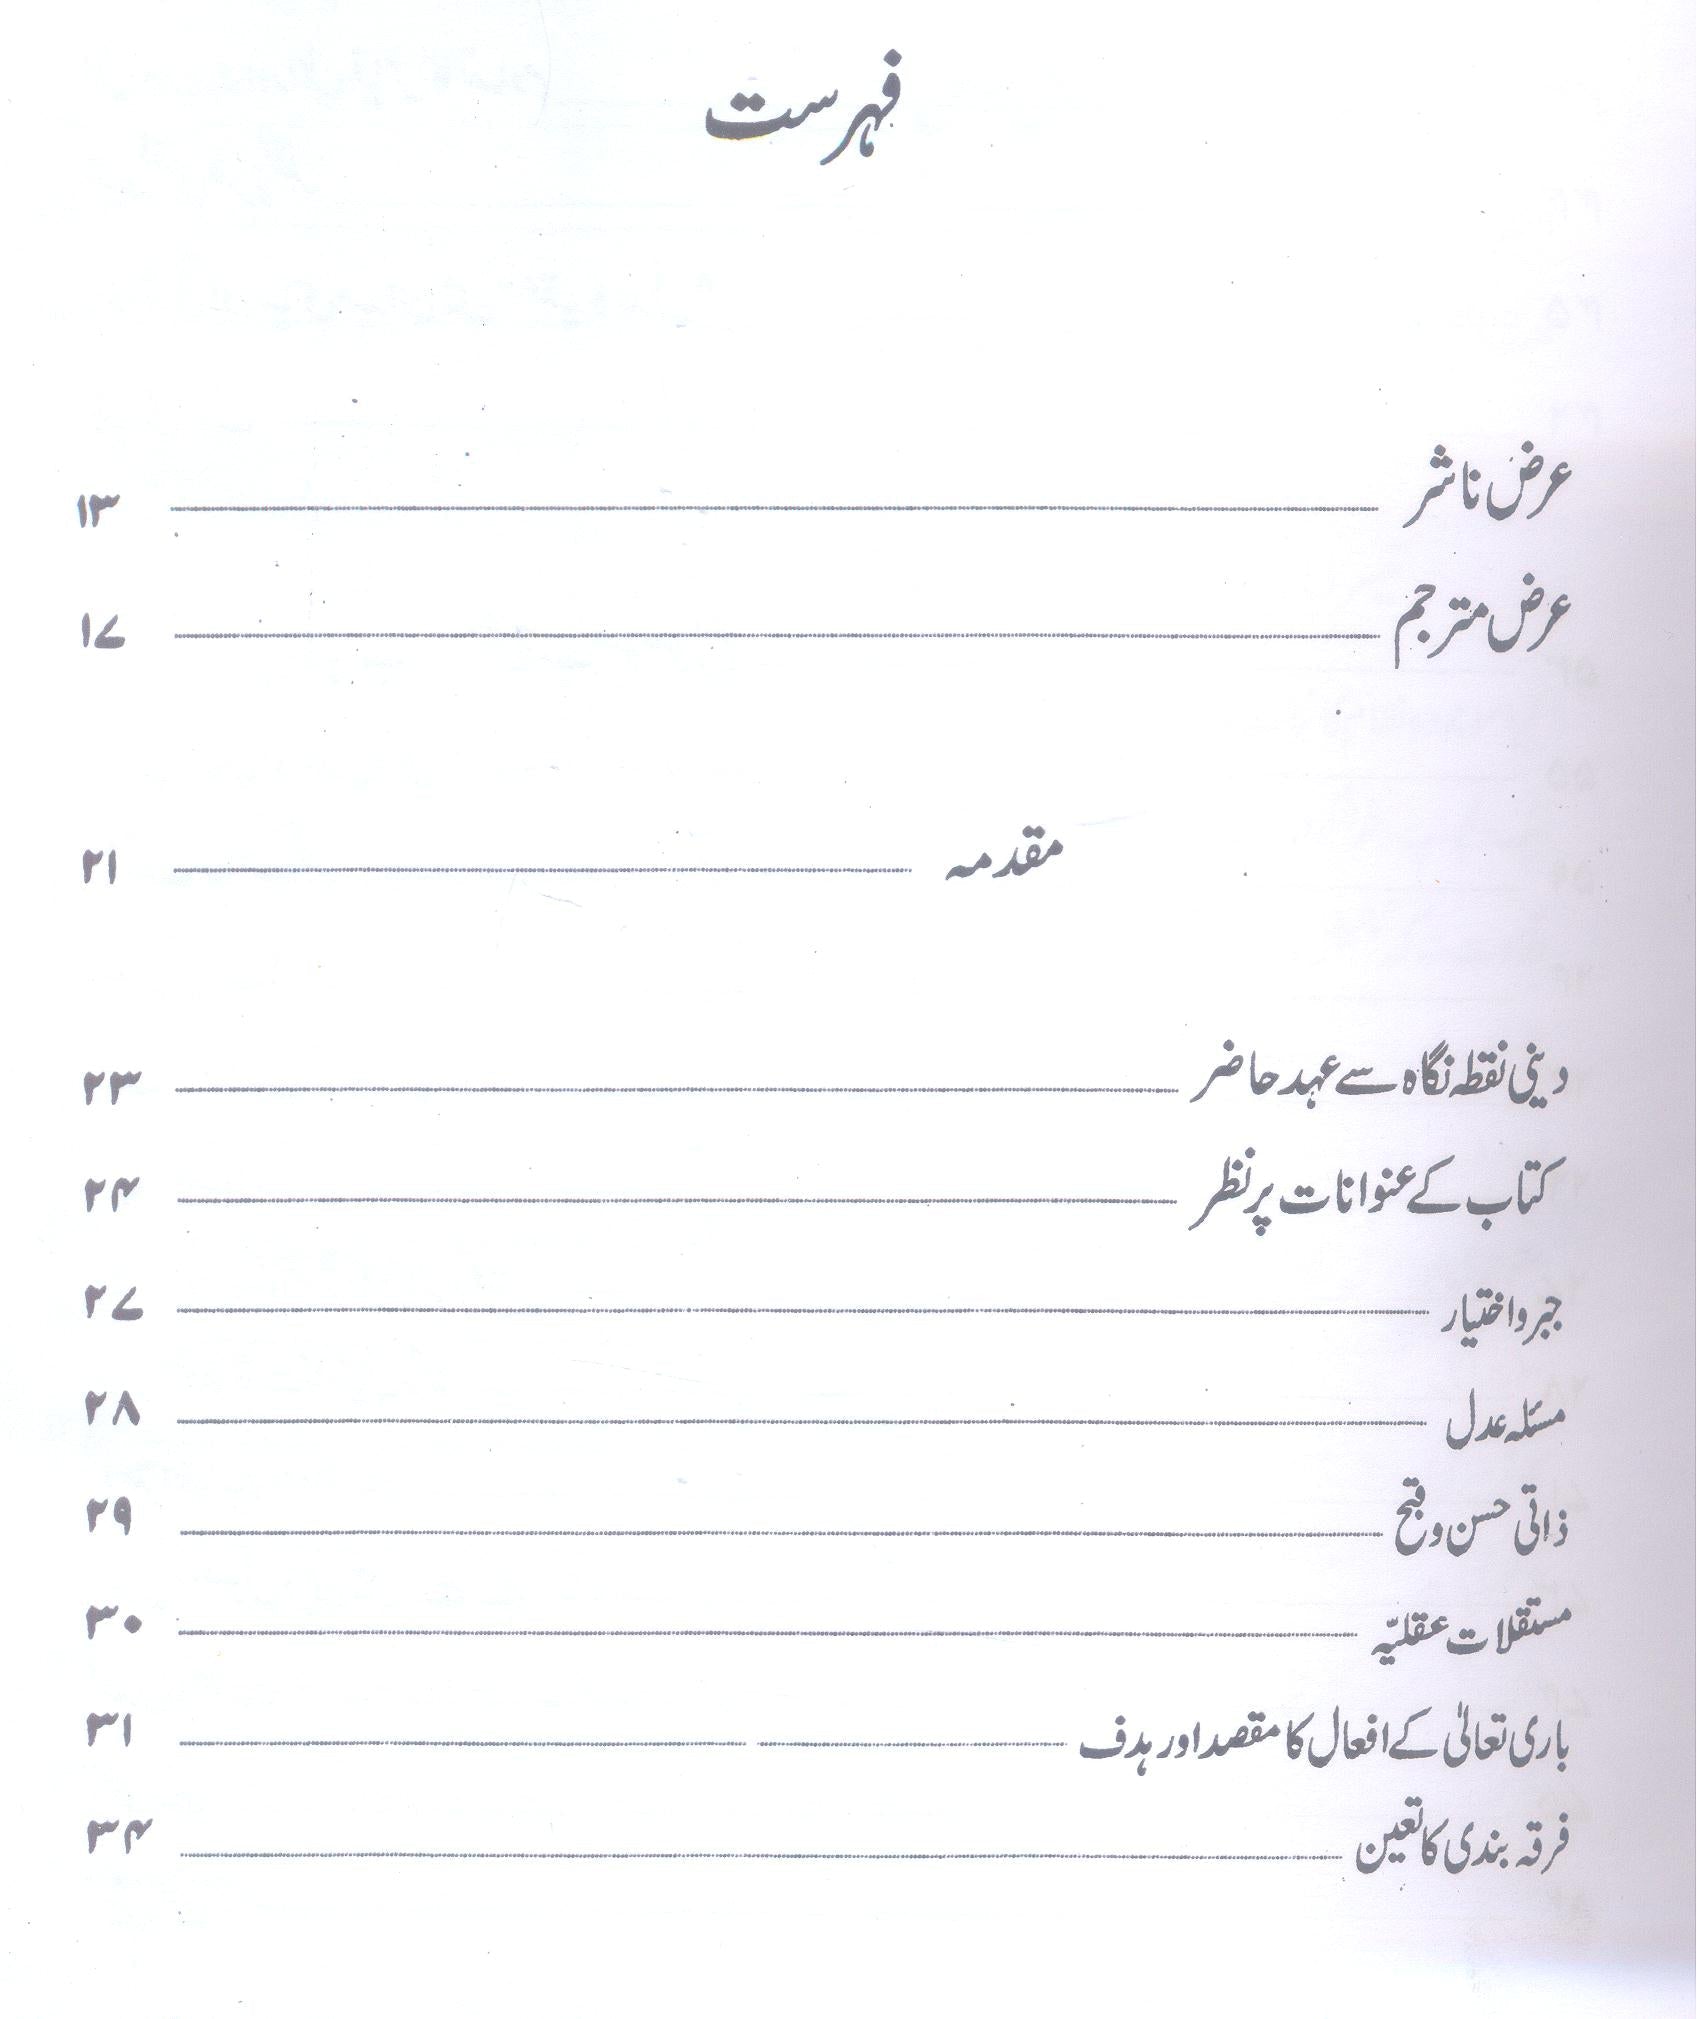 فہرست
عرض ناشر ۱۳
عرض مترجم ۱۷
مقدمہ ۲۱
دینی نقطہ نگاہ سے عہد حاضر ۲۳
کتاب کے عنوانات پر نظر ۲۴
جبر و اختیار ۲۷
مسئلہ عدل ۲۸
ذاتی حسن و قبح ۲۹
مستقلات عقلیّہ ۳۰
باری تعالیٰ کے افعال کا مقصد اور ہدف ۳۱
فرقہ بندی کا تعین ۳۴